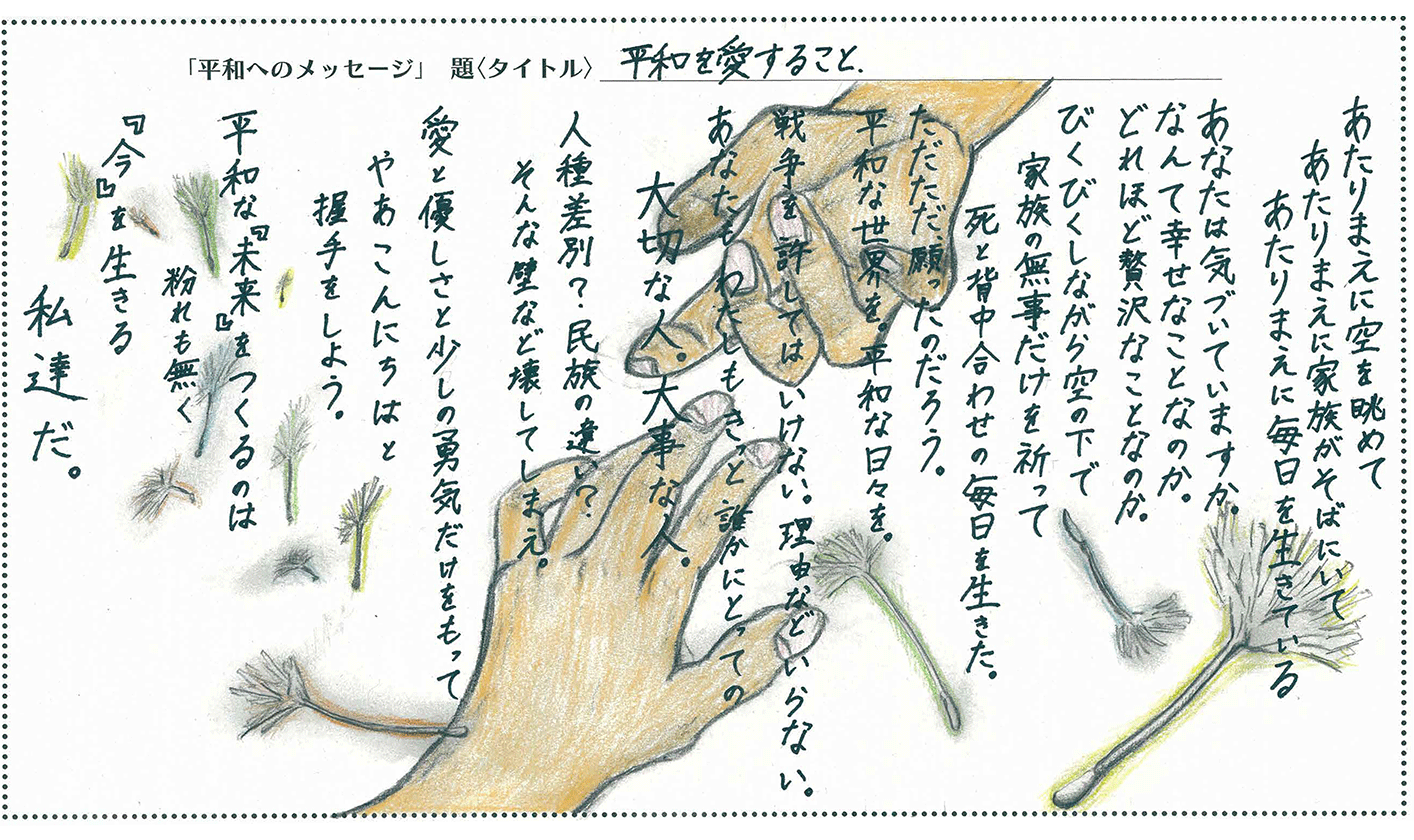 「平和へのメッセージ」 題〈タイトル〉 平和を愛すること.
あたりまえに空を眺めて
あたりまえに家族がそばにいて
あたりまえに毎日を生きている
あなたは気づいていますか。
なんて幸せなことなのか。
どれほど贅沢なことなのか。
びくびくしながら空の下で
家族の無事だけを祈って
死と背中合わせの毎日を生きた。
ただただ願ったのだろう。
平和な世界を。平和な日々を。
戦争を許してはいけない。理由などいらない。
あなたもわたしもきっと誰かにとっての
大切な人。大事な人。
人種差別?民族の違い?
そんな壁など壊してしまえ。
愛と優しさと少しの勇気だけをもって
やあこんにちはと
握手をしよう。
平和な『未来』をつくるのは
粉れも無く
『今』を生きる
私達だ。